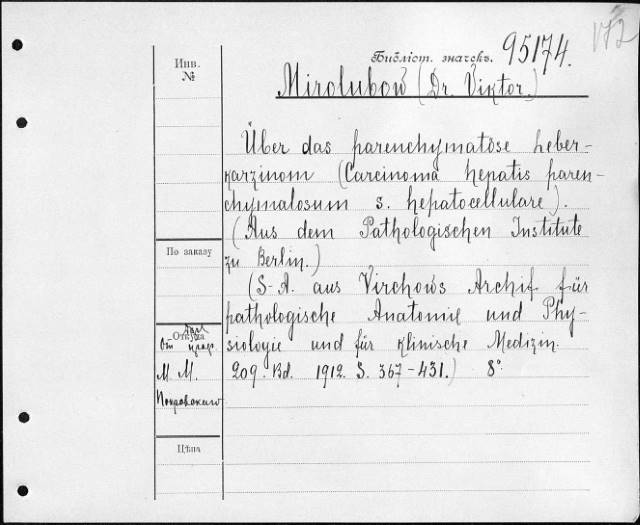 172
Библіот. значекъ. 95174.
Инв.
№
Mirolubow (Dr. Viktor.)
Über das parenchymatöse Leber-
karzinom (Carcinoma hepatis paren-
chymatosum s. hepatocellulare).
(Aus dem Pathologischen Institute
zu Berlin.)
(S-A. aus Virchows Archif für
pathologische Anatomie und Phy-
siologie und für klinische Medizin.
209. Bd. 1912. S. 367-431.) 8°
По заказу
Откуда
От
М. М.
Покровскаго
Цѣна